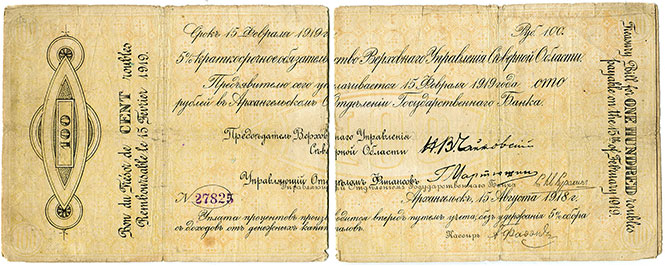 100
Bon du Trésor de CENT roubles
Remboursable le 15 Février 1919.
Срокъ 15 Февраля 1919 г.
Руб. 100.
5% Краткосрочное обязательство Верховнаго Управленія Сѣверной Области.
Предъявителю сего уплачивается 15 Февраля 1919 года сто
рублей въ Архангельскомъ Отдѣленіи Государственнаго Банка.
Предсѣдатель Верховнаго Управленія
Сѣверной Области
Н. В. Чайковскій
Управляющій Отдѣломъ Финансовъ
Управляющій Отдѣленіемъ Государственнаго Банка
№ 27825
Архангельскъ, 15 Августа 1918 г.
Уплата процентовъ производится впередъ путемъ учета, безъ удержанія 5% сбора
съ доходовъ отъ денежныхъ капиталовъ.
Кассиръ
Treasury Bill for ONE HUNDRED roubles
payable on the 15th of February 1919.